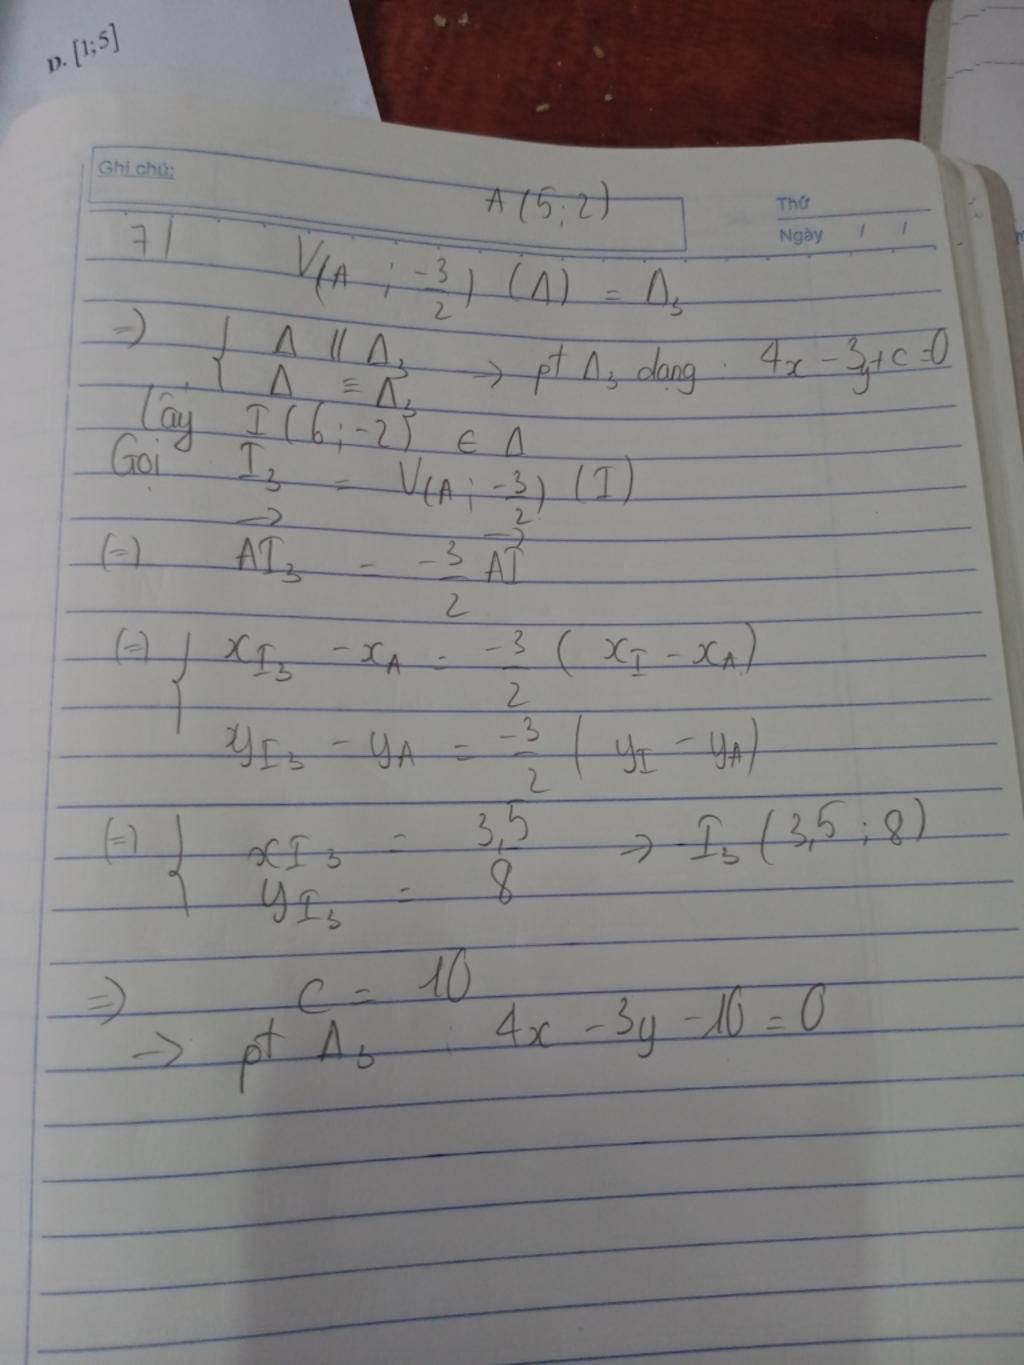 D. [1;5]
Ghi chú:
A (5; 2)
Thứ
Ngày / /
7/
V(A ; -3/2) (Δ) = Δ3
=> { Δ // Δ3
Δ ≡ Δ3
-> pt Δ3 dạng : 4x - 3y + c = 0
Lấy I (6; -2) ∈ Δ
Gọi I3 = V(A; -3/2) (I)
(=) AI3 = -3/2 AI
(=) { xI3 - xA = -3/2 ( xI - xA)
yI3 - yA = -3/2 ( yI - yA)
(=) { xI3 = 3,5
yI3 = 8
-> I3 (3,5 ; 8)
=> C = 10
-> pt Δ3 : 4x - 3y - 10 = 0